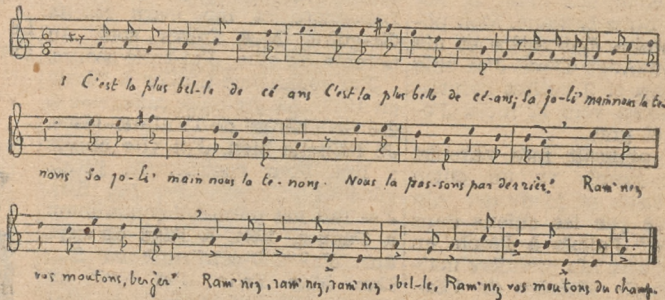 1 C'est la plus bel-le de cé ans C'est la plus belle de cé-ans; Sa jo-li' main nous la te-
nons Sa jo-li' main nous la te-nons. Nous la pas-sons par derrièr'. Ram'nez
vos moutons, berger' Ram'nez, ram'nez, ram'nez, bel-le, Ram'nez vos moutons du champ.